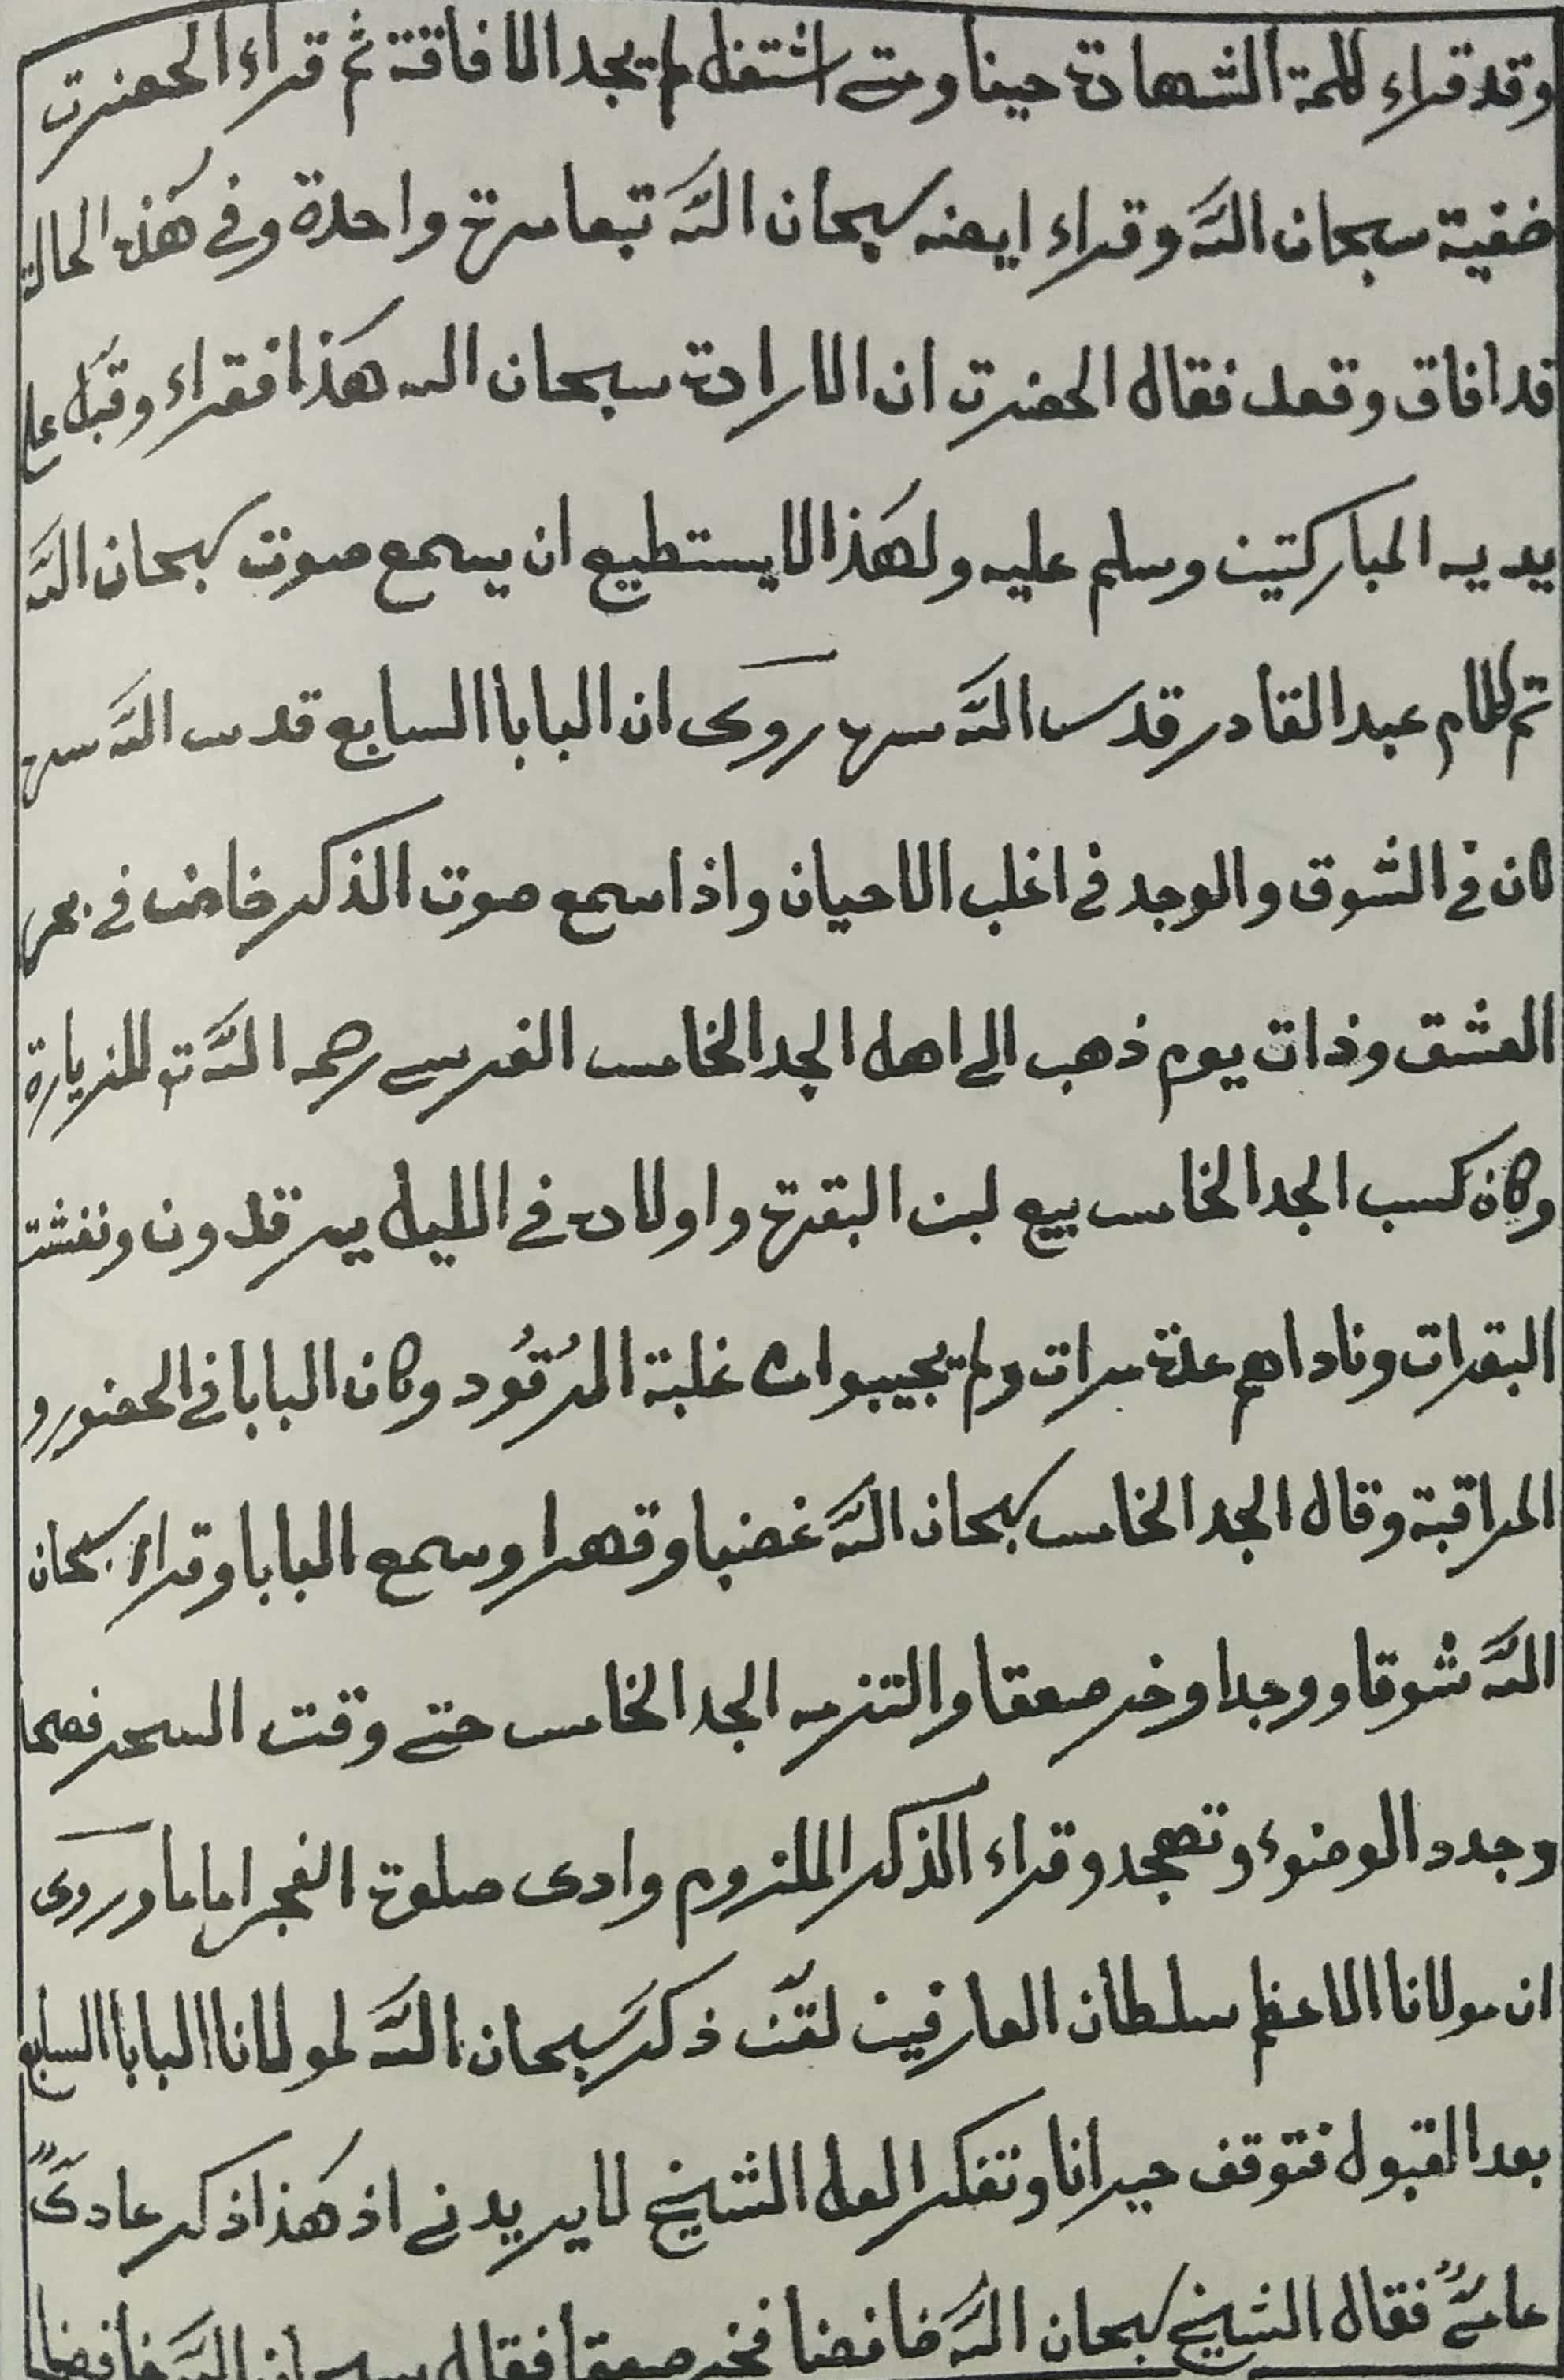 وقد قراء كلمة الشهادة حينا ومتے اشتغل لم يجد الافاقة ثم قراء الحضرت
خفية سبحان الله وقراء ايضه سبحان الله تبعا مرة واحدة وفي هذه الحالة
قد افاق وقعد فقال الحضرت ان الارادة سبحان الله هكذا فقراء وقبّل علے
يديه المباركتين وسلم عليه ولهذا لايستطيع ان يسمع صوت سبحان الله
تم كلام عبد القادر قدس الله سره روى ان البابا السابع قدس الله سره
كان في الشوق والوجد في اغلب الاحيان واذا سمع صوت الذكر خاض في بحر
العشق وذات يوم ذهب الى اهل الجد الخامس الغرسے رحمه الله تع للزيارة
وكان كسب الجد الخامس بيع لبن البقرة واولاده في الليل يرقدون ونفشت
البقرات وناداهم عدة مرات ولم يجيبوا من غلبة الرُقُود وكان البابا في الحضور و
المراقبة وقال الجد الخامس سبحان الله غضبا وقهرا وسمع البابا وقراء سبحان
الله شوقا ووجدا وخر صعقا والتزمه الجد الخامس حتے وقت السحر فصحا
وجدد الوضوء وتهجد وقراء الذكر الملزوم وادى صلوة الفجر اماما وروى
ان مولانا الاعظم سلطان العارفين لقّن ذكر سبحان الله لمولانا البابا السابع
بعد القبول فتوقف حيرانا وتفكر لعل الشيخ لايريدنے اذ هذا ذكر عادىٌّ
عامىٌّ فقال الشيخ سبحان الله خافضا فخر صعقا فقال سبحان الله خافضا